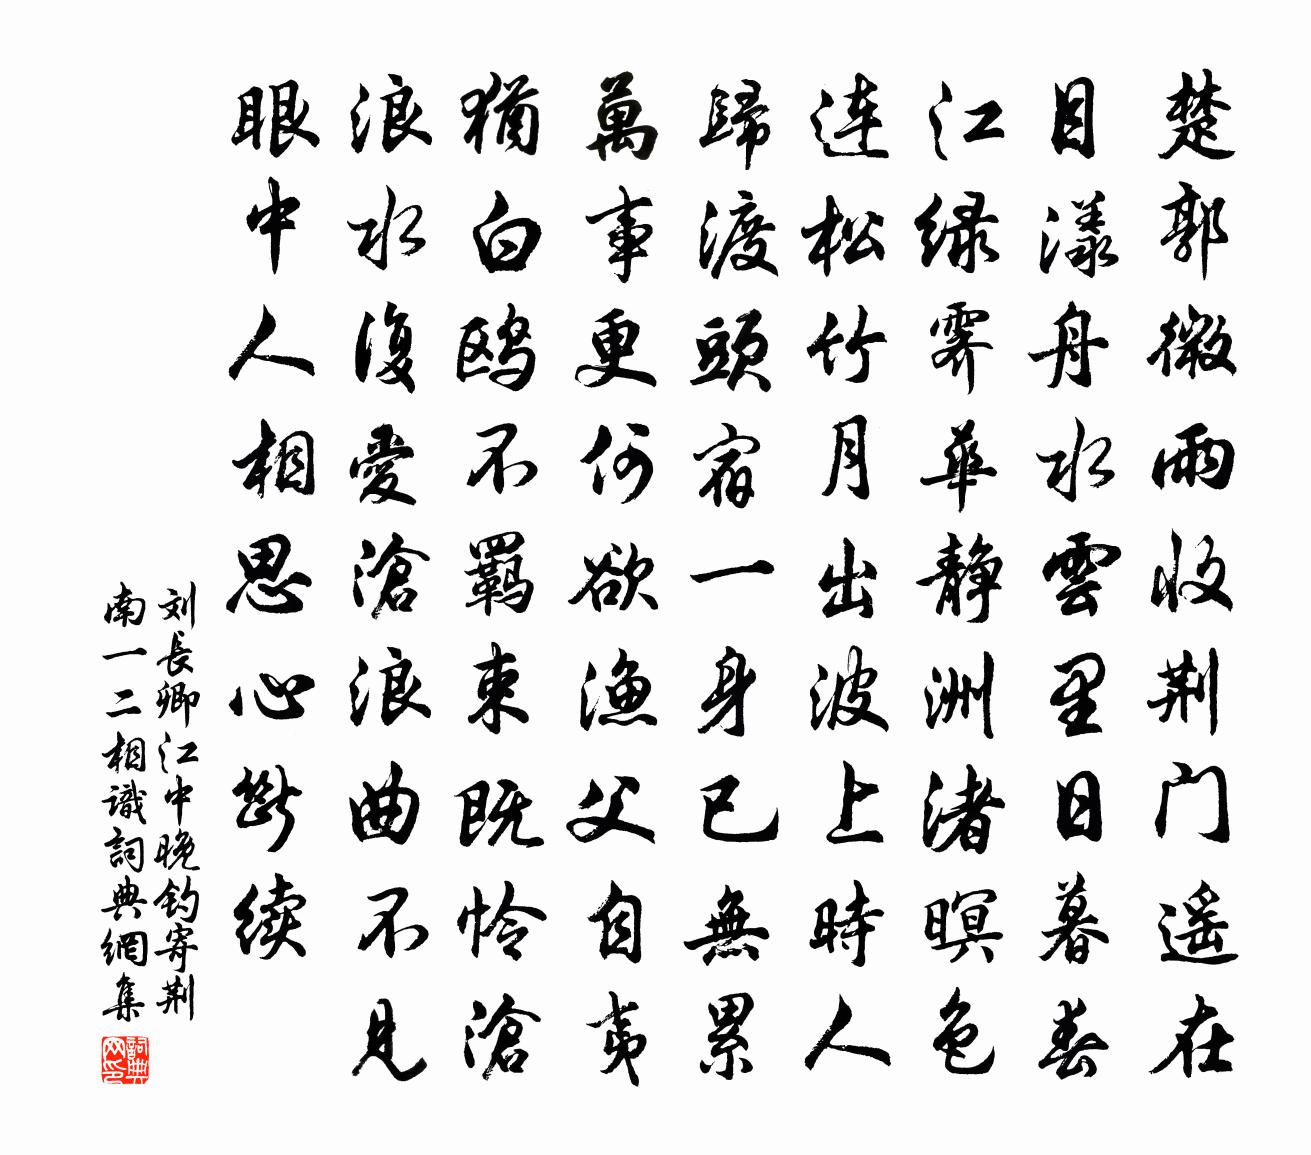 楚郭微雨收荆门遥在
目漾舟水雲里日暮春
江绿霽華静洲渚暝色
连松竹月出波上時人
歸渡頭宿一身已無累
萬事更何欲渔父自夷
猶白鸥不羈束既怜滄
浪水復愛滄浪曲不見
眼中人相思心斷续
刘長卿江中晚钓寄荆
南一二相識詞典網集
詞典
网印